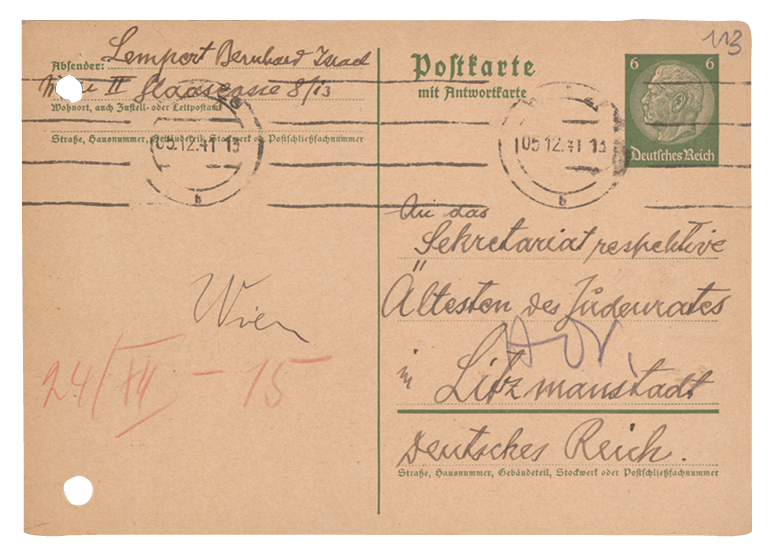 Absender: Lempert Bernhard Israel
Wien II Haasgasse 8/13
Wohnort, auch Zustell- oder Leitpostamt
Straße, Hausnummer, Gebäudeteil, Stockwerk od. Postschließfachnummer
05.12.41 13
b
Wien
24/XII - 15
113
Postkarte
mit Antwortkarte
6 6
Deutsches Reich
05.12.41 13
b
An das
Sekretariat respektive
Ältesten des Judenrates
in Litzmanstadt
Deutsches Reich.
Straße, Hausnummer, Gebäudeteil, Stockwerk oder Postschließfachnummer